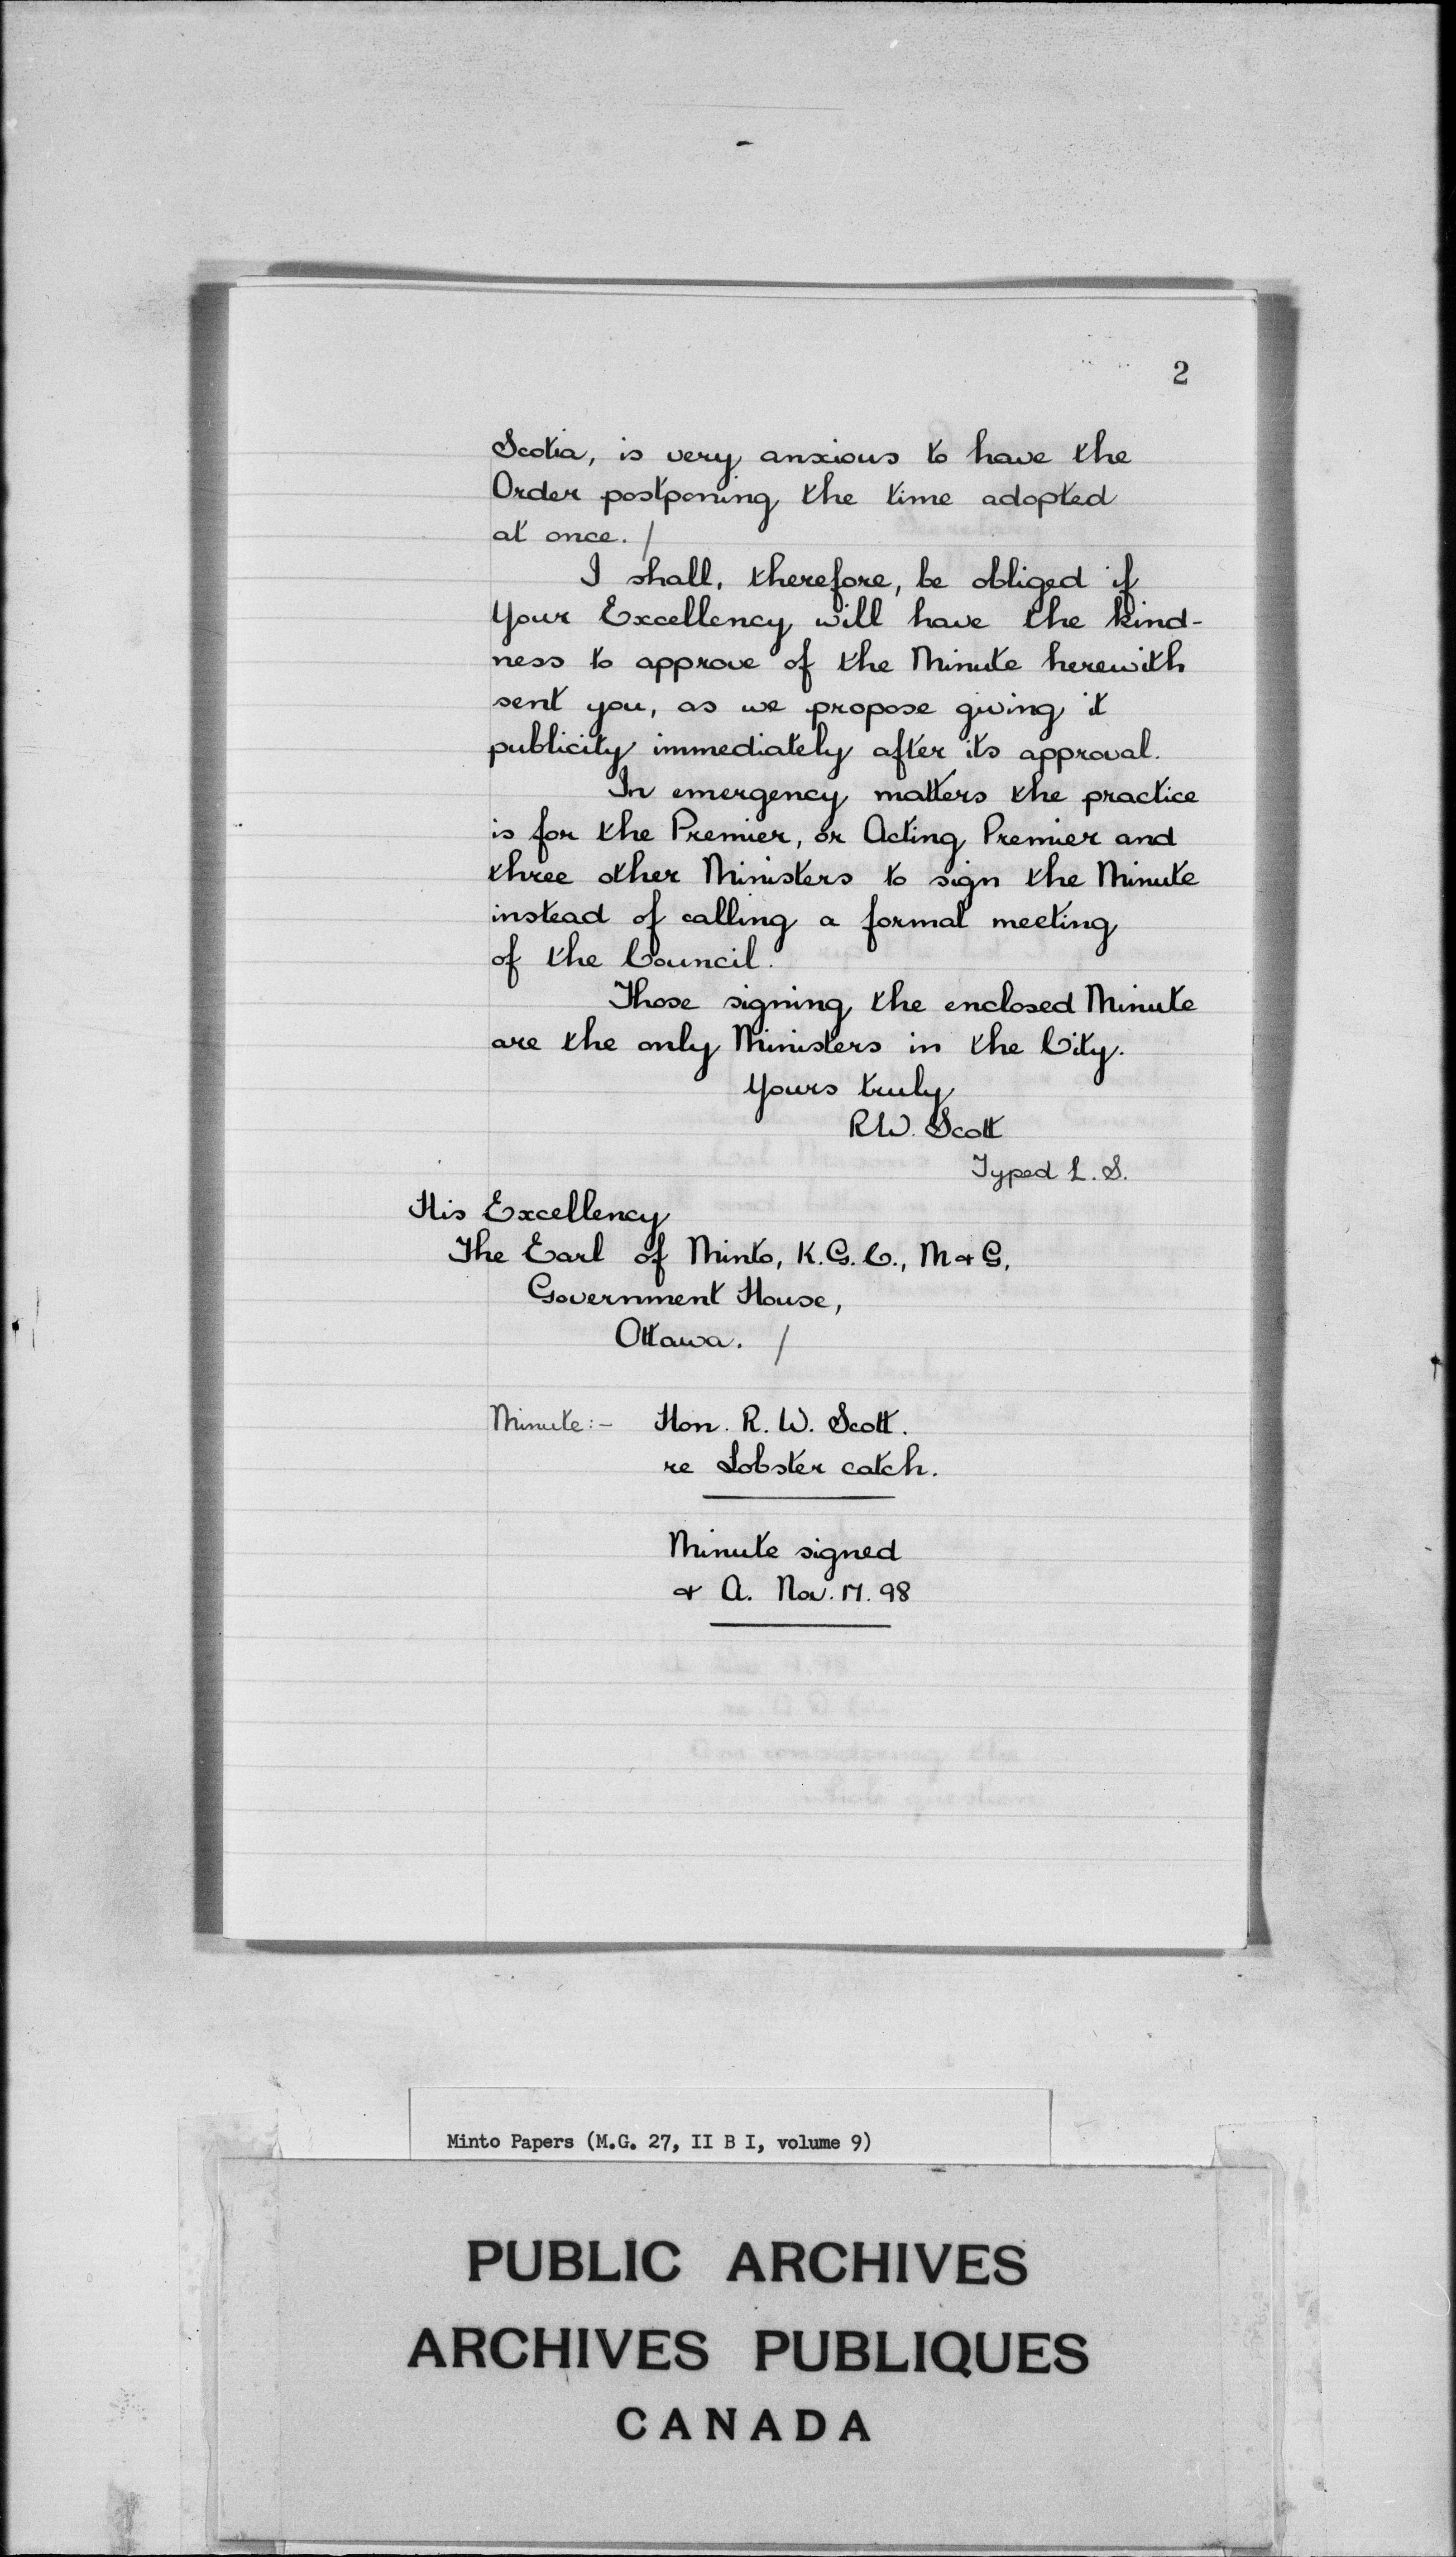 2
Scotia, is very anxious to have the
Order postponing the time adopted
at once. /
I shall, therefore, be obliged if
Your Excellency will have the kind-
ness to approve of the Minute herewith
sent you, as we propose giving it
publicity immediately after its approval.
In emergency matters the practice
is for the Premier, or Acting Premier and
three other Ministers to sign the Minute
instead of calling a formal meeting
of the Council.
Those signing the enclosed Minute
are the only Ministers in the City.
Yours truly
R.W. Scott
Typed L. S.
His Excellency
The Earl of Minto, K.G.C., M & G,
Government House,
Ottawa. /
Minute:- Hon. R. W. Scott.
re Lobster catch.
Minute signed
& A. Nov. 17. 98
Minto Papers (M.G. 27, II B I, volume 9)
PUBLIC ARCHIVES
ARCHIVES PUBLIQUES
CANADA